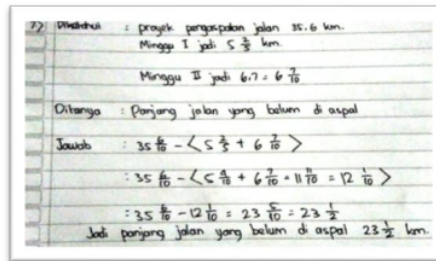 7) Diketahui : proyek pengaspalan jalan 35.6 km.
Minggu I jadi 5 2/5 km.
Minggu II jadi 6.7 = 6 7/10
Ditanya : Panjang jalan yang belum di aspal
Jawab : 35 6/10 - <5 2/5 + 6 7/10>
: 35 6/10 - <5 4/10 + 6 7/10 = 11 11/10 = 12 1/10>
: 35 6/10 - 12 1/10 = 23 5/10 = 23 1/2
Jadi panjang jalan yang belum di aspal 23 1/2 km.